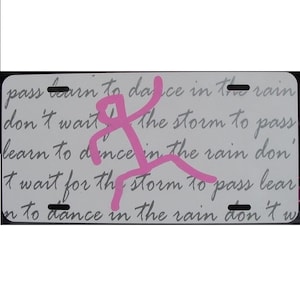 pass learn to dance in the rain
don't wait for the storm to pass
learn to dance in the rain don'
't wait for the storm to pass lear
n to dance in the rain don't w